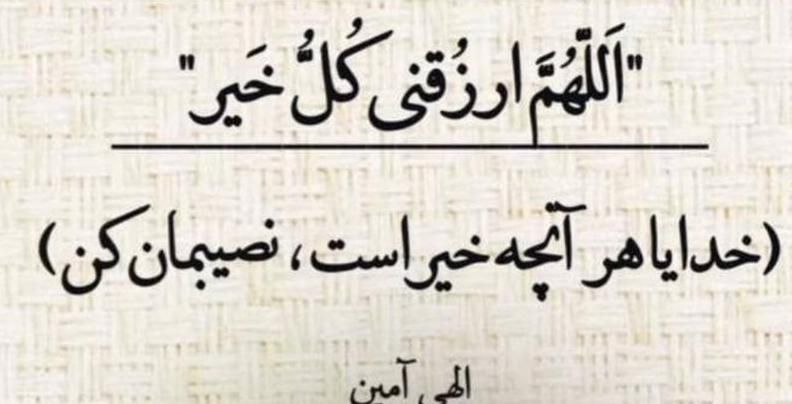 "اَللّهُمَّ ارزُقنی کُلُّ خَیر"
(خدایا هر آنچه خیر است، نصیبمان کن)
الهی آمین